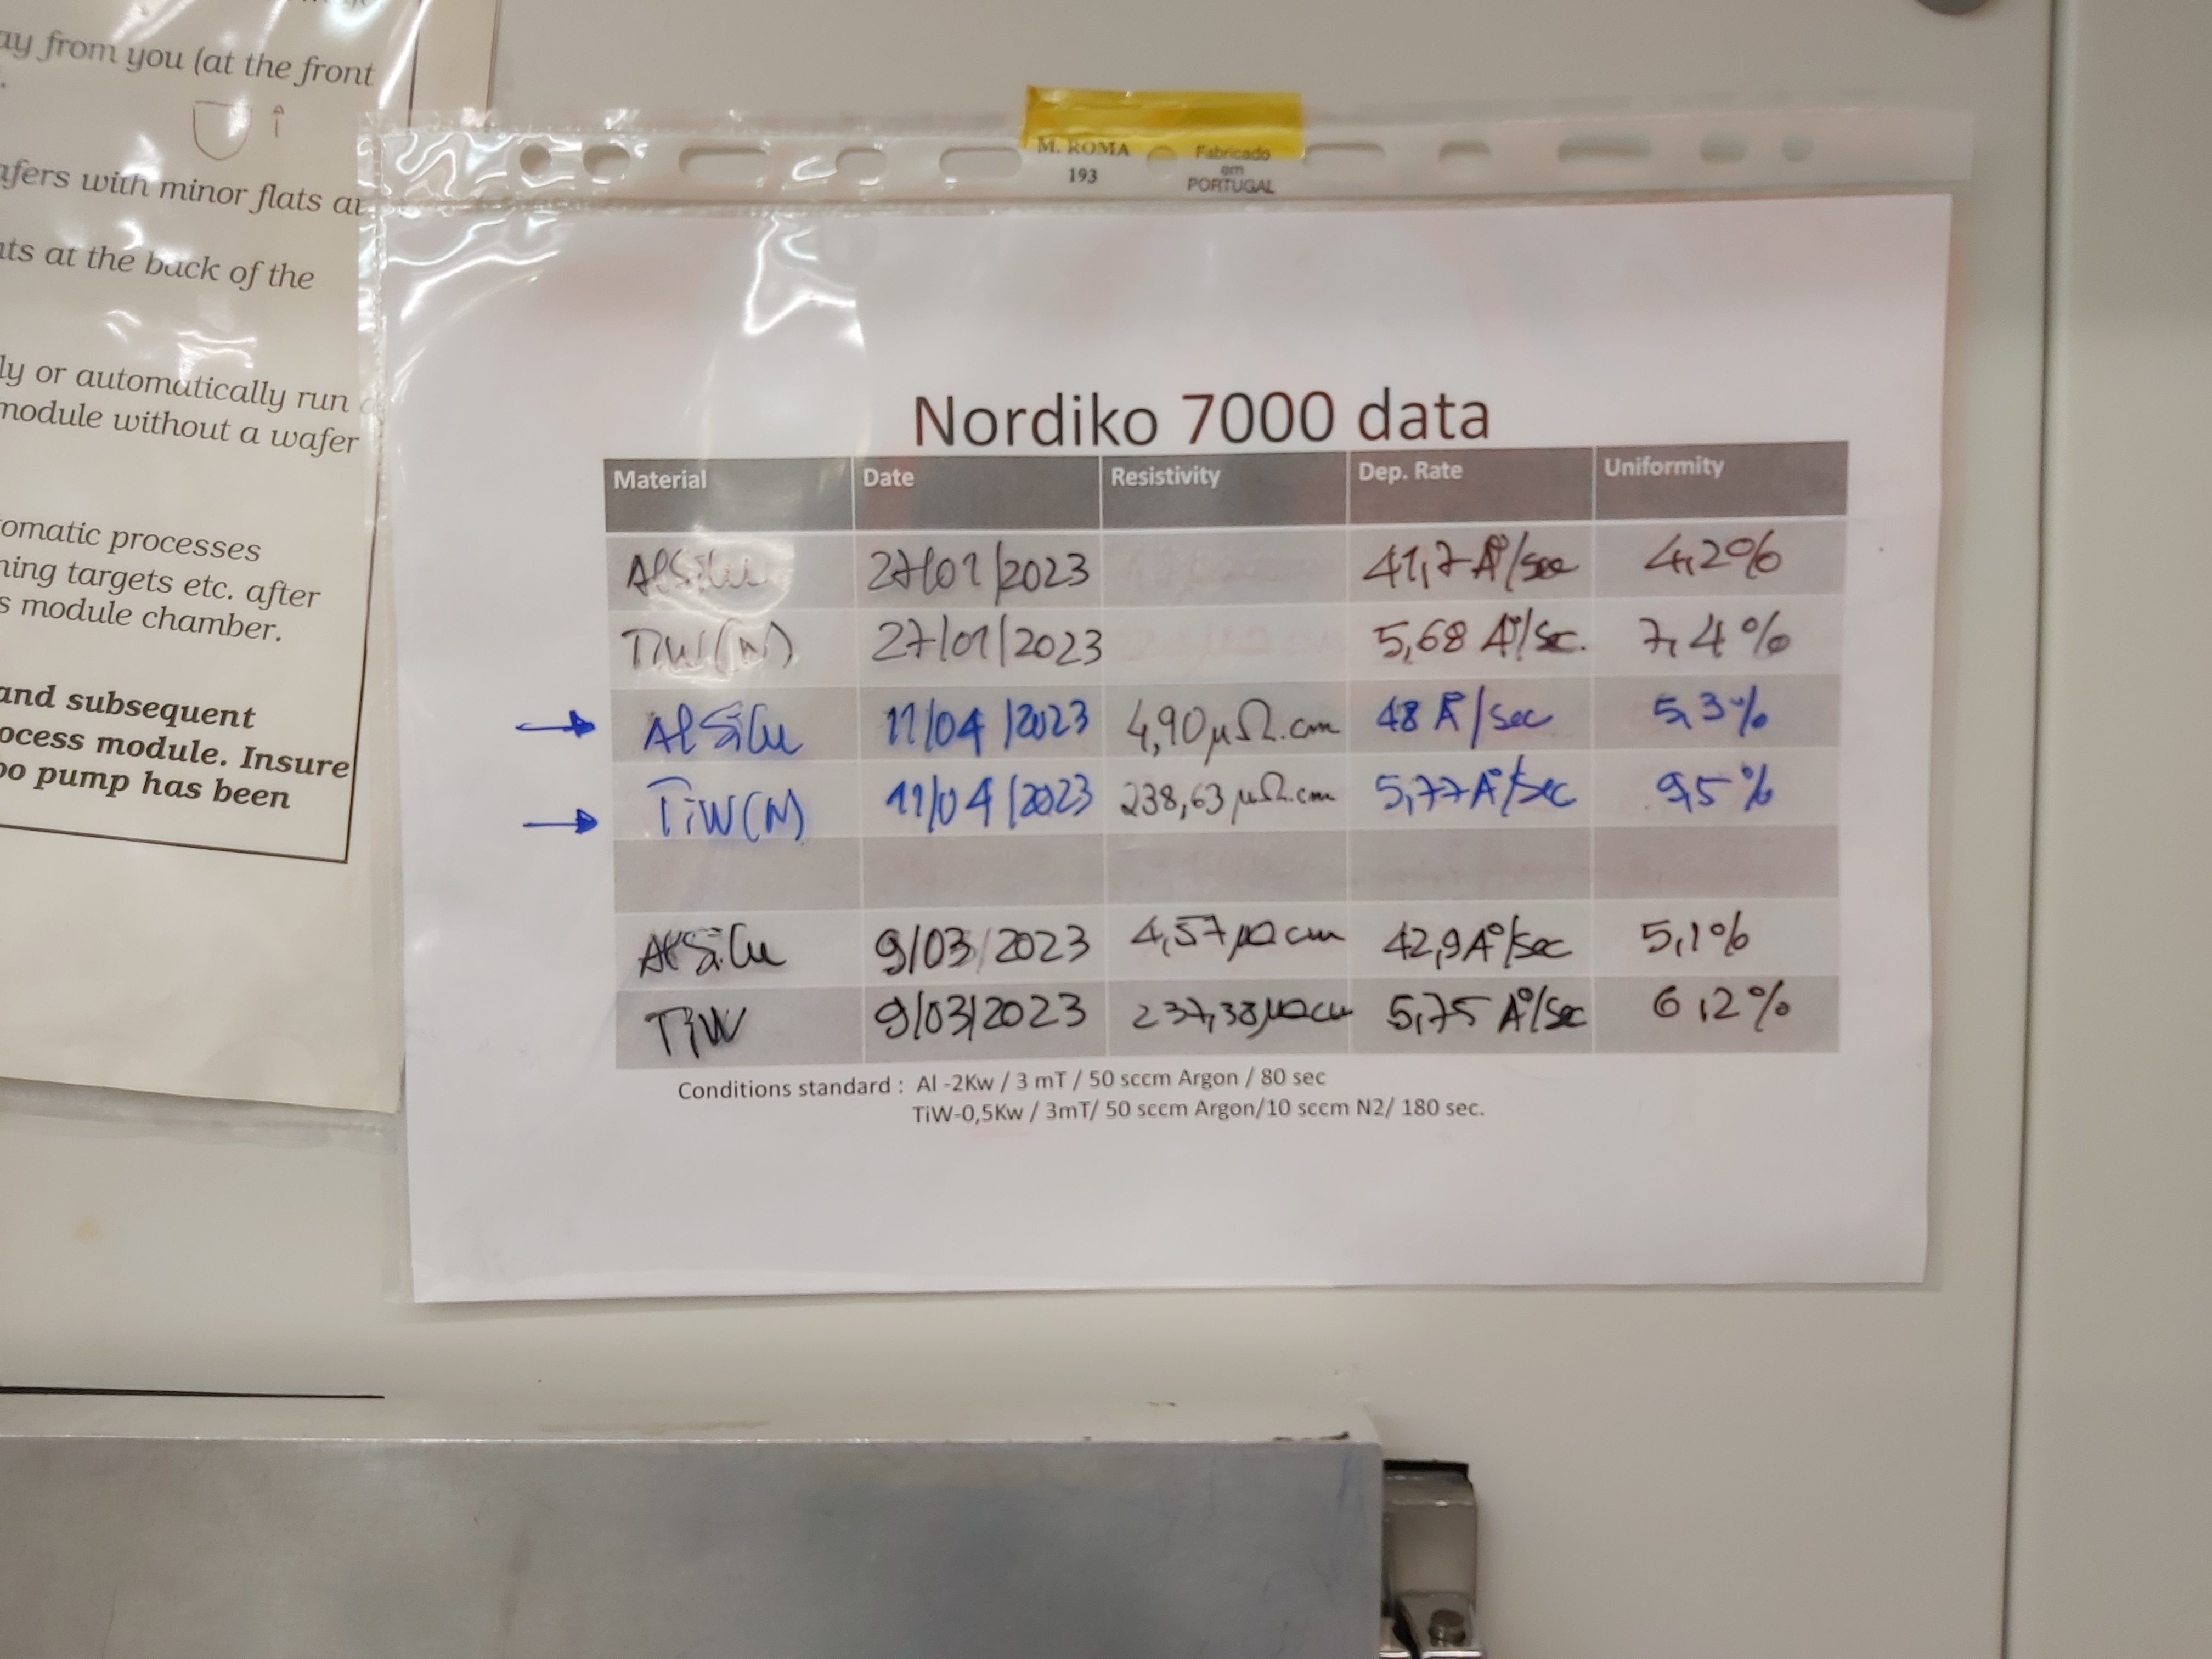 ay from you (at the front
afers with minor flats
nts at the back of the
ly or automatically run
module without a wafer
tomatic processes
ning targets etc. after
s module chamber.
and subsequent
ocess module. Insure
bo pump has been
M. ROMA
193
Fabricado
em
PORTUGAL
Nordiko 7000 data
Material Date Resistivity Dep. Rate Uniformity
AlSiCu 27/01/2023 41,7 Å/sec 4,2%
TiW(N) 27/01/2023 5,68 Å/sec. 7,4%
→ AlSiCu 11/04/2023 4,90 μΩ.cm 48 Å/sec 5,3%
→ TiW(N) 11/04/2023 238,63 μΩ.cm 5,77 Å/sec 9,5%
AlSiCu 9/03/2023 4,57 μΩcm 42,9 Å/sec 5,1%
TiW 9/03/2023 237,38 μΩcm 5,75 Å/sec 6,2%
Conditions standard : Al -2Kw / 3 mT / 50 sccm Argon / 80 sec
TiW-0,5Kw / 3mT/ 50 sccm Argon/10 sccm N2/ 180 sec.